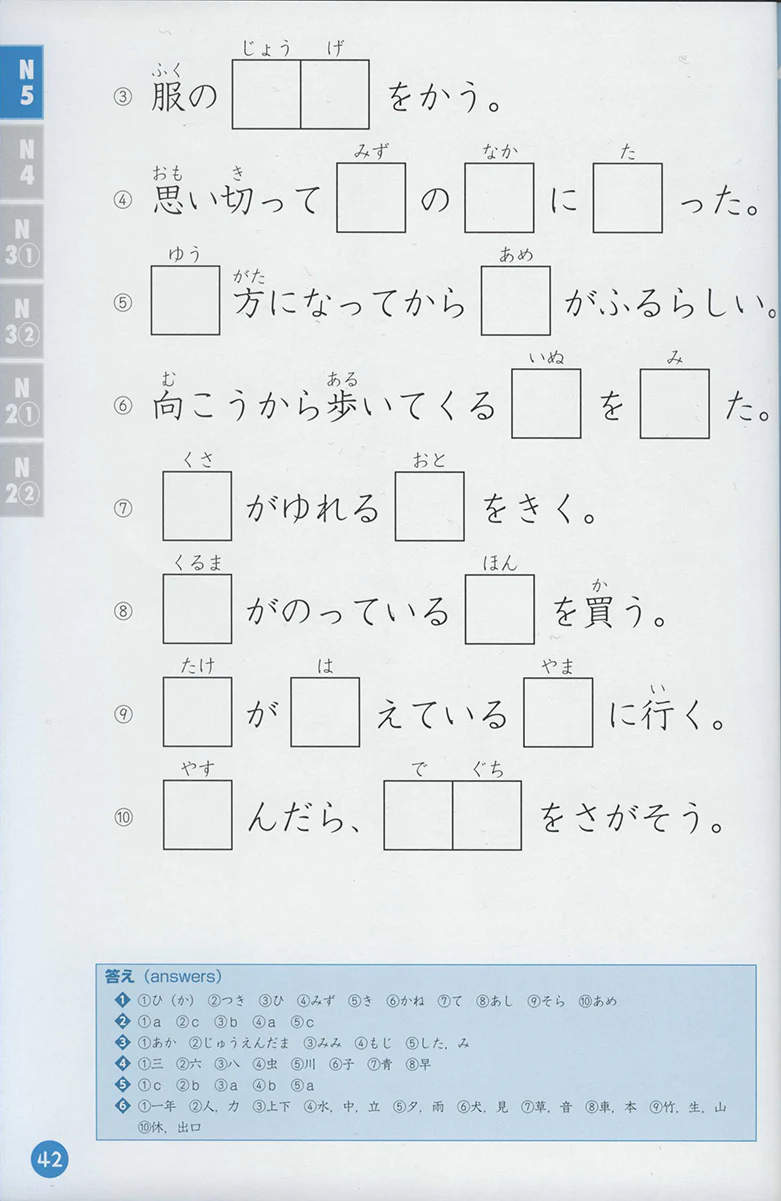 N5
N4
N3①
N3②
N2①
N2②
じょう げ
ふく
③ 服の をかう。
おも き みず なか た
④ 思い切って の に った。
ゆう がた あめ
⑤ 方になってから がふるらしい。
む ある いぬ み
⑥ 向こうから歩いてくる を た。
くさ おと
⑦ がゆれる をきく。
くるま ほん か
⑧ がのっている を買う。
たけ は やま い
⑨ が えている に行く。
やす で ぐち
⑩ んだら、 をさがそう。
答え (answers)
1 ①ひ(か) ②つき ③ひ ④みず ⑤き ⑥かね ⑦て ⑧あし ⑨そら ⑩あめ
2 ①a ②c ③b ④a ⑤c
3 ①あか ②じゅうえんだま ③みみ ④もじ ⑤した，み
4 ①三 ②六 ③八 ④虫 ⑤川 ⑥子 ⑦青 ⑧早
5 ①c ②b ③a ④b ⑤a
6 ①一年 ②人，力 ③上下 ④水，中，立 ⑤夕，雨 ⑥犬，見 ⑦草，音 ⑧車，本 ⑨竹，生，山
⑩休，出口
42